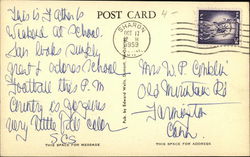 POST CARD
This is Father's
Weekend at School.
Ian looks simply
great & adores School
Football this P.M
Country is gorgeous
very little fall color
SHARON
OCT 17
1959
CONN.
Mrs W. P. Conklin
Old Mountain Rd
Farmington
Conn
THIS SPACE FOR MESSAGE
THIS SPACE FOR ADDRESS